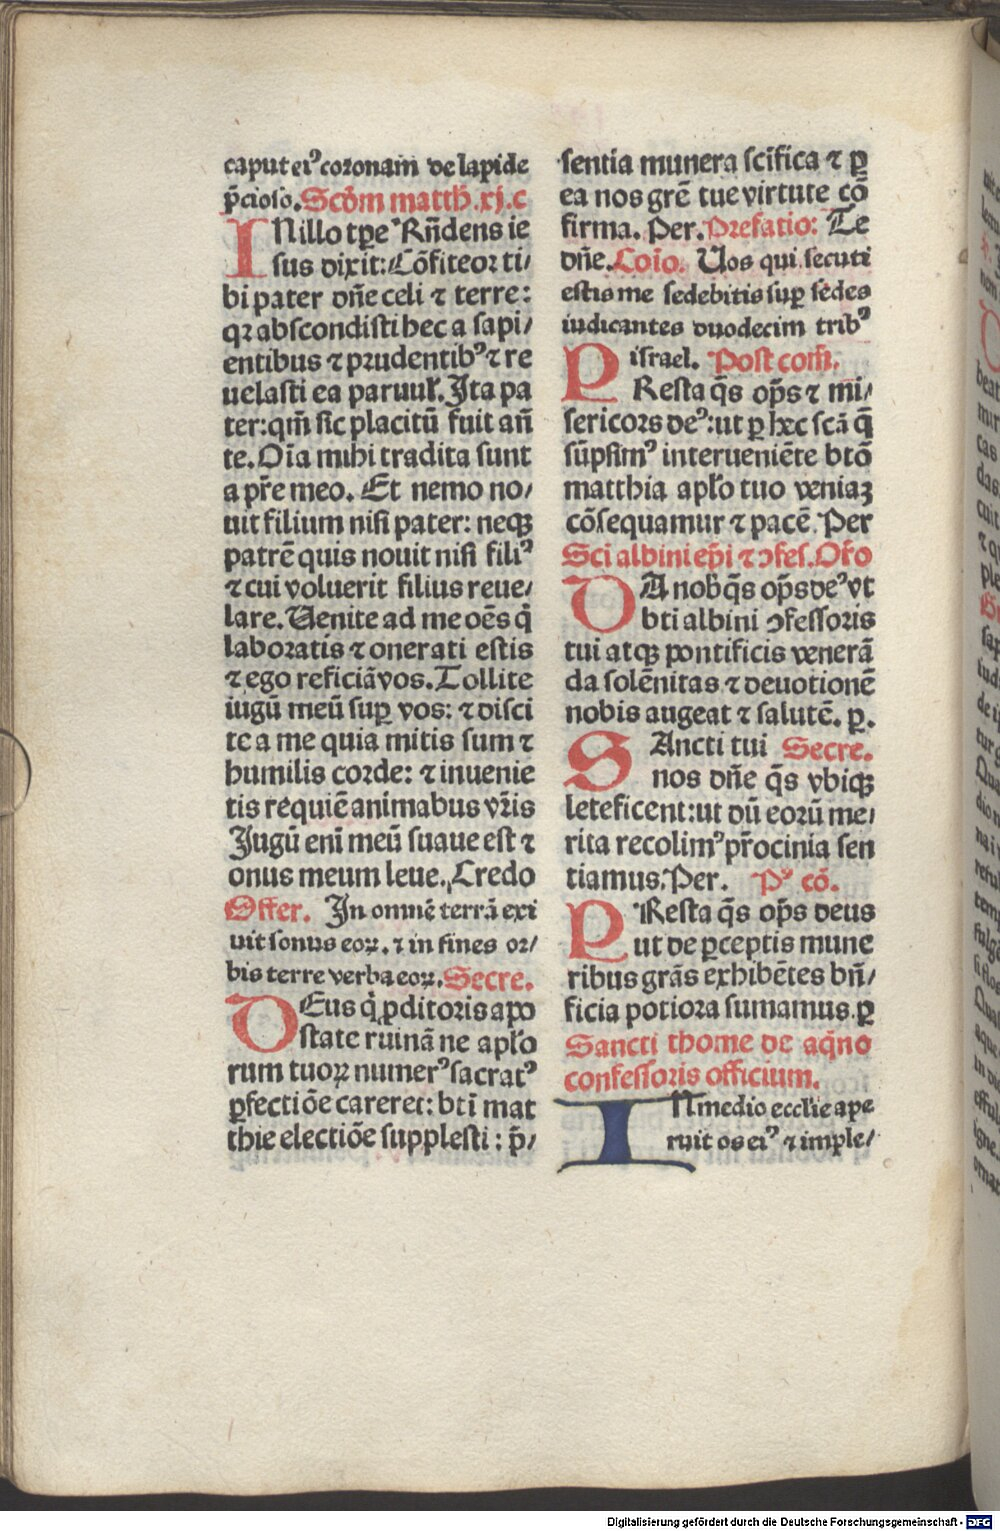 caput ei⁹ coronam de lapide
p̄cioso. Scd̄m matth̄. xj. c
IN illo tp̄e Rn̄dens ie
sus dixit: Cōfiteor ti/
bi pater dn̄e celi ⁊ terre:
qꝛ abscondisti hec a sapi/
entibus ⁊ prudentib⁹ ⁊ re
uelasti ea paruul̓. Ita pa
ter: qm̄ sic placitū fuit an̄
te. Oīa mihi tradita sunt
a pr̄e meo. Et nemo no/
uit filium nisi pater: neqꝫ
patrē quis nouit nisi fili⁹
⁊ cui voluerit filius reue/
lare. Uenite ad me oēs q̇
laboratis ⁊ onerati estis
⁊ ego reficiā vos. Tollite
iugū meū suꝑ vos: ⁊ disci
te a me quia mitis sum ⁊
humilis corde: ⁊ inuenie
tis requiē animabus vr̄is
Jugū eni̅ meū suaue est ⁊
onus meum leue. Credo
Offer. In omnē terrā exi
uit sonus eoꝝ. ⁊ in fines or/
bis terre verba eoꝝ. Secre.
DEus q̇ ꝑditoris apo
state ruinā ne apl̓o
rum tuoꝝ numer⁹ sacrat⁹
ꝑfectiōe careret: bt̄i mat
thie electiōe supplesti: p̄/
sentia munera scīfica ⁊ ꝑ
ea nos grē tue virtute cō
firma. Per. Prefatio: Te
dn̄e. Cōio. Uos qui secuti
estis me sedebitis suꝑ sedes
iudicantes duodecim trib⁹
israel. Post com̄.
PResta q̄s op̄s ⁊ mi/
sericors de⁹: ut ꝑ hec scā q̄
sūpsim⁹ interueniēte btō
matthia apl̓o tuo veniaꝫ
cōsequamur ⁊ pacē. Per
Sci albini ep̄i ⁊ ↄfes. Or̄o
DA nob̄ q̄s op̄s de⁹ vt
bti albini ↄfessoris
tui atqꝫ pontificis venerā
da solēnitas ⁊ deuotionē
nobis augeat ⁊ salutē. ꝑ.
SAncti tui Secre.
nos dn̄e q̄s vbiqꝫ
leteficent: ut dū eorū me/
rita recolim⁹ pr̄ocinia sen
tiamus. Per. P⁹ cō.
PResta q̄s op̄s deus
ut de ꝑceptis mune
ribus grās exhibētes bn̄/
ficia potiora sumamus. ꝑ
Sancti thome de aq̄no
confessoris officium.
IN medio ecclīe ape
ruit os ei⁹ ⁊ imple/
Digitalisierung gefördert durch die Deutsche Forschungsgemeinschaft - DFG